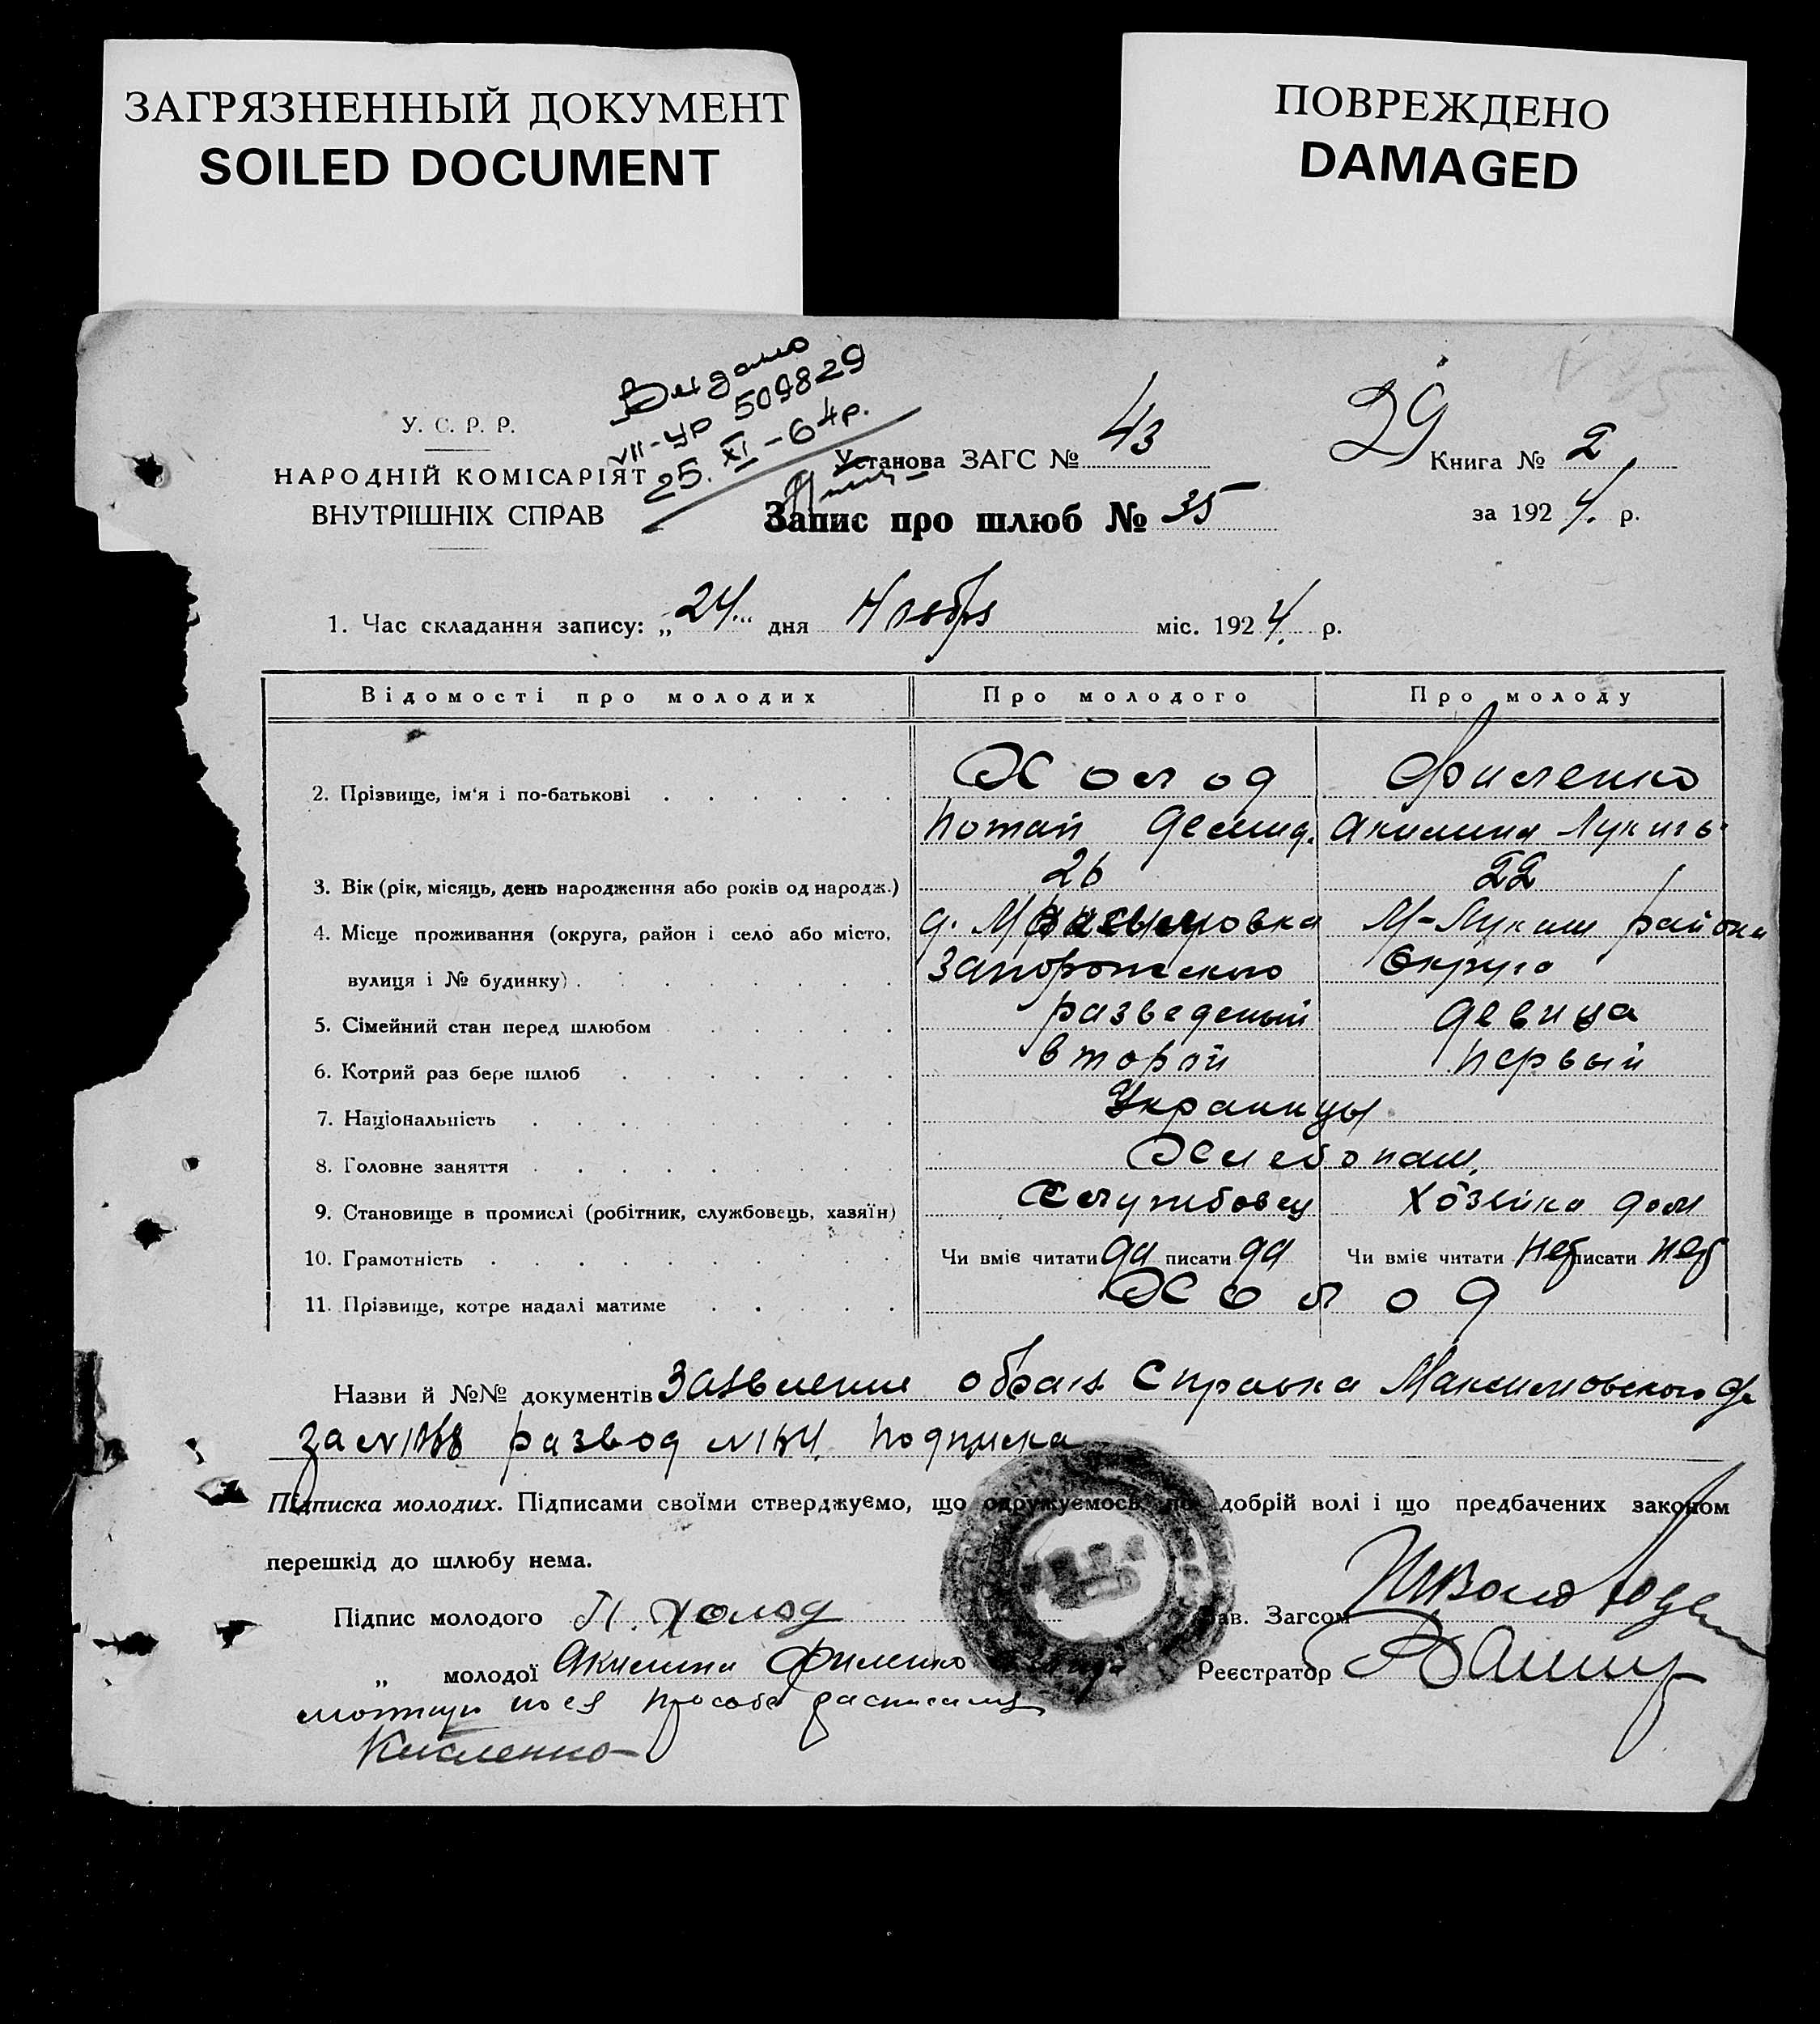 ЗАГРЯЗНЕННЫЙ ДОКУМЕНТ
SOILED DOCUMENT
ПОВРЕЖДЕНО
DAMAGED
Видано
VII-УР 509829
25. XI - 64р.
29
У. С. Р. Р.
НАРОДНІЙ КОМІСАРІЯТ
ВНУТРІШНІХ СПРАВ
Установа ЗАГС № 43
Книга № 2
Запис про шлюб № 35
за 1924. р.
1. Час складання запису: „24" дня Ноября міс. 1924. р.
Відомості про молодих Про молодого Про молоду
2. Прізвище, ім'я і по-батькові Холод Филенко
Потап Демид. Акилина Лукить
3. Вік (рік, місяць, день народження або років од народж.) 26 22
4. Місце проживання (округа, район і село або місто, д. Максимовка М-Лукаш района
вулиця і № будинку) Запорожского Округа
5. Сімейний стан перед шлюбом разведеный девица
6. Котрий раз бере шлюб второй первый
7. Національність Украинцы
8. Головне заняття Хлебопаш.
9. Становище в промислі (робітник, службовець, хазяїн) Службовец Хозяйка дом
10. Грамотність Чи вміє читати да писати да Чи вміє читати нет писати нет
11. Прізвище, котре надалі матиме Холод
Назви й №№ документів Заявление обоих Справка Максимовского
за № развод № Подписка
Підписка молодих. Підписами своїми стверджуємо, що одружуємось по добрій волі і що предбачених законом
перешкід до шлюбу нема.
Підпис молодого П. Холод
Зав. Загсом
„ молодої Акилина Филенко
Реєстратор
по ея просьбе расписался